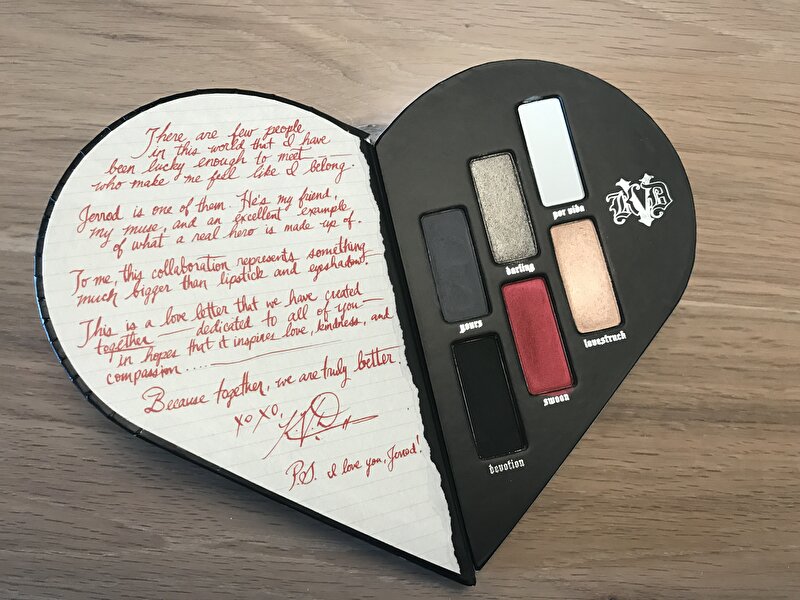 There are few people
in this world that I have
been lucky enough to meet —
who make me fell like I belong.
Jerrod is one of them. He's my friend,
my muse, and an excellent example
of what a real hero is made up of.
To me, this collaboration represents something
much bigger than lipstick and eyeshadow.
This is a love letter that we have created
together — dedicated to all of you —
in hopes that it inspires love, kindness, and
compassion ....
Because together, we are truly better.
XOXO,
K.V.D
P.S. I love you, Jerrod!
por vida
darling
yours
lovestruck
swoon
devotion
KVD